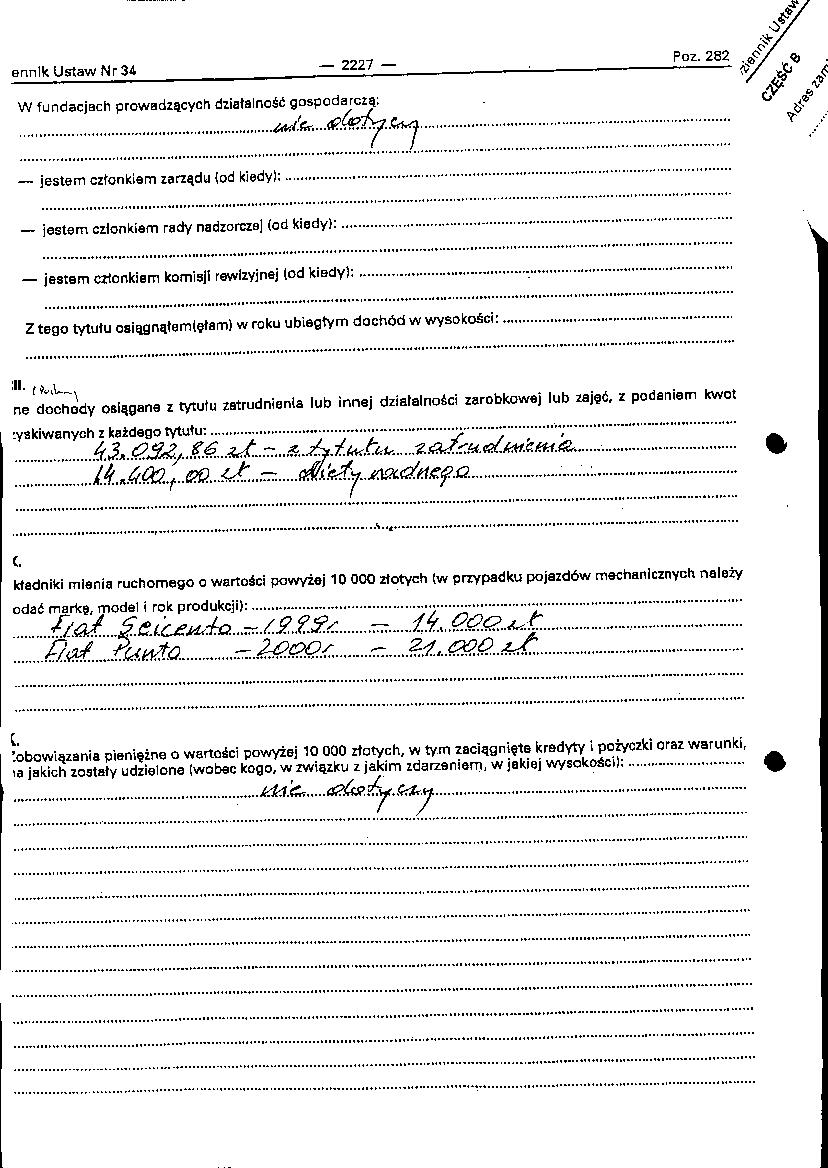 ennik Ustaw Nr 34 — 2227 — Poz. 282
ziennik Ustaw
CZĘŚĆ B
Adres zam
W fundacjach prowadzących działalność gospodarczą:
nie dotyczy
— jestem członkiem zarządu (od kiedy):
— jestem członkiem rady nadzorczej (od kiedy):
— jestem członkiem komisji rewizyjnej (od kiedy):
Z tego tytułu osiągnąłem(ęłam) w roku ubiegłym dochód w wysokości:
III.
ne dochody osiągane z tytułu zatrudnienia lub innej działalności zarobkowej lub zajęć, z podaniem kwot
yskiwanych z każdego tytułu:
43.092,86 zł – z tytułu zatrudnienia
14.400,00 zł – diety radnego
kładniki mienia ruchomego o wartości powyżej 10 000 złotych (w przypadku pojazdów mechanicznych należy
odać markę, model i rok produkcji):
Fiat Seicento – 1999r – 14.000 zł
Fiat Punto – 2000r – 21.000 zł
obowiązania pieniężne o wartości powyżej 10 000 złotych, w tym zaciągnięte kredyty i pożyczki oraz warunki,
a jakich zostały udzielone (wobec kogo, w związku z jakim zdarzeniem, w jakiej wysokości):
nie dotyczy